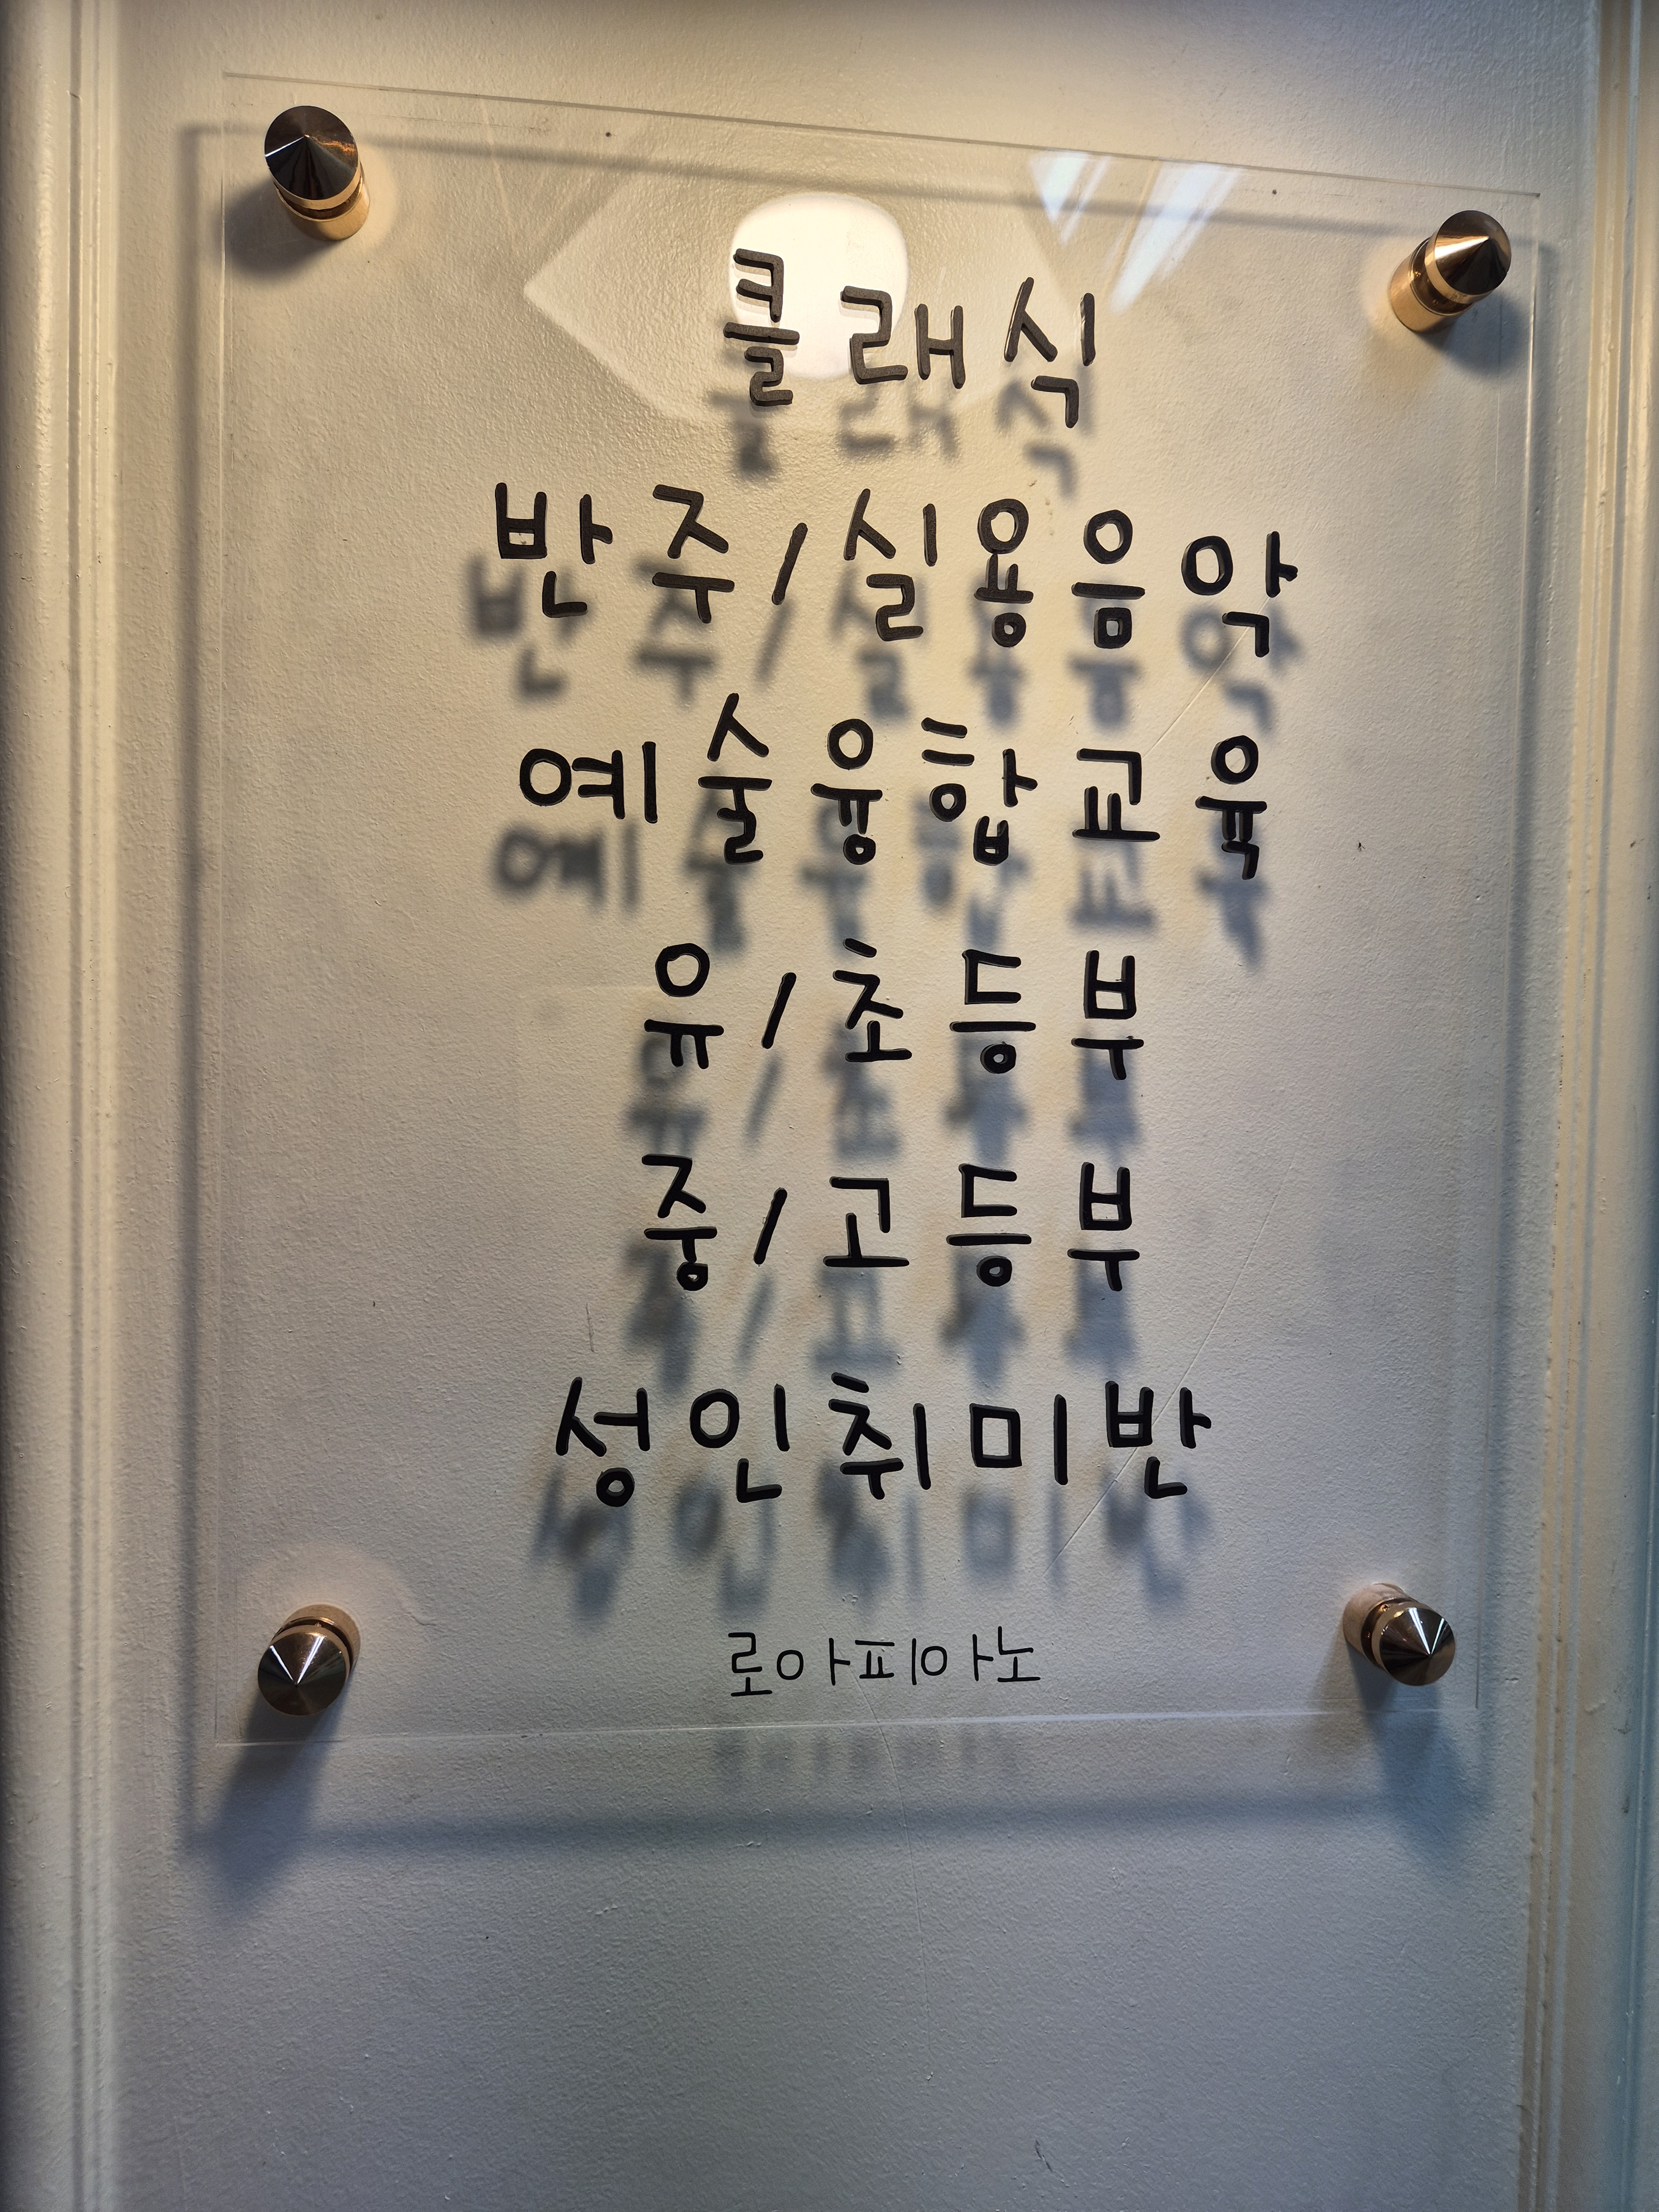 클래식
반주/실용음악
예술융합교육
유/초등부
중/고등부
성인취미반
로아피아노